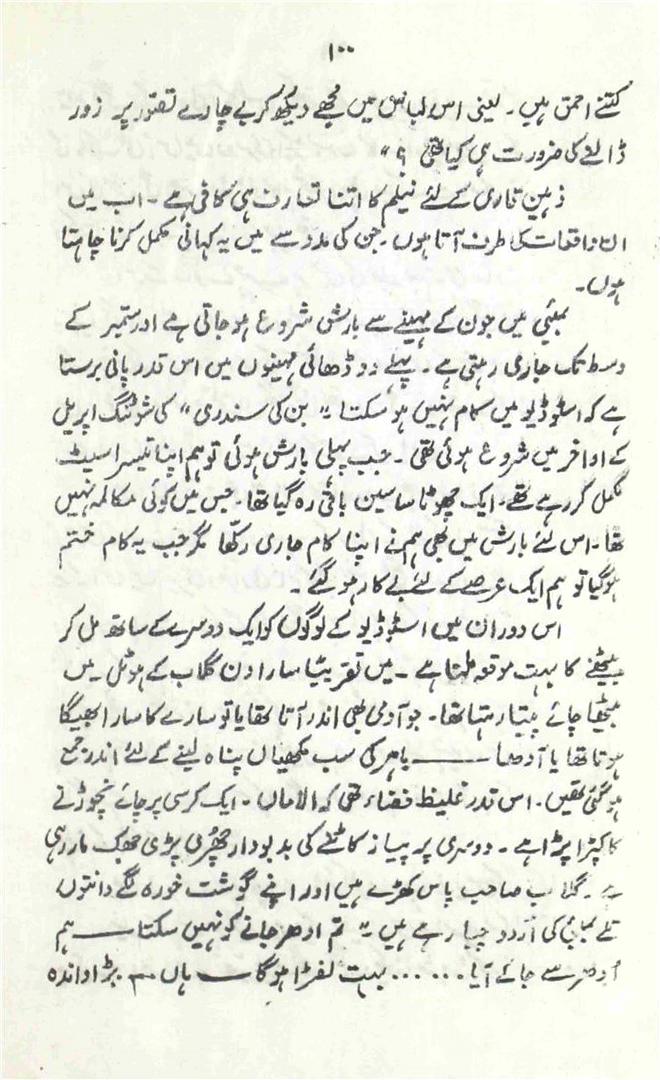 ۱۰۰
کتنے احمق ہیں۔ لیعنی اس لباس میں مجھے دیکھ کر بے چارے تصور پر زور
ڈالنے کی ضرورت ہی کیا تھی ؟"
ذہین قاری کے لئے نیلم کا اتنا تعارف ہی کافی ہے۔ اب میں
ان واقعات کی طرف آتا ہوں۔ جن کی مدد سے میں یہ کہانی مکمل کرنا چاہتا
ہوں۔
بمبئی میں جون کے مہینے سے بارش شروع ہو جاتی ہے اور ستمبر کے
وسط تک جاری رہتی ہے۔ پہلے دو ڈھائی مہینوں میں اس قدر پانی برستا
ہے کہ اسٹوڈیو میں کام نہیں ہو سکتا۔ "بن کی سندری" کی شوٹنگ اپریل
کے اواخر میں شروع ہوئی تھی۔ جب پہلی بارش ہوئی تو ہم اپنا تیسرا سیٹ
مکمل کر رہے تھے۔ ایک چھوٹا سا سین باقی رہ گیا تھا۔ جس میں کوئی مکالمہ نہیں
تھا۔ اس لئے بارش میں بھی ہم نے اپنا کام جاری رکھا مگر جب یہ کام ختم
ہو گیا تو ہم ایک عرصے کے لئے بے کار ہو گئے۔
اس دوران میں اسٹوڈیو کے لوگوں کو ایک دوسرے کے ساتھ مل کر
بیٹھنے کا بہت موقعہ ملتا ہے۔ میں تقریباً سارا دن گلاب کے ہوٹل میں
بیٹھا چائے پیتا رہتا تھا۔ جو آدمی بھی اندر آتا تھا یا تو سارے کا سارا بھیگا
ہوتا تھا یا آدھا ــــــ باہر کی سب مکھیاں پناہ لینے کے لئے اندر جمع
ہو گئی تھیں۔ اس قدر غلیظ فضاء تھی کہ الاماں۔ ایک کرسی پر چائے نچوڑنے
کا کپڑا پڑا ہے۔ دوسری پر پیاز کاٹنے کی بدبودار چھُری پڑی جھک مار رہی
ہے۔ گلاب صاحب پاس کھڑے ہیں اور اپنے گوشت خورہ لگے دانتوں
تلے بمبئی کی اُردو چبا رہے ہیں۔ "تم ادھر جانے کو نہیں سکتا ــــ ہم
اُدھر سے جائے آیا...... بہت لفڑا ہو گا ــــ ہاں ــ بڑا واندہ